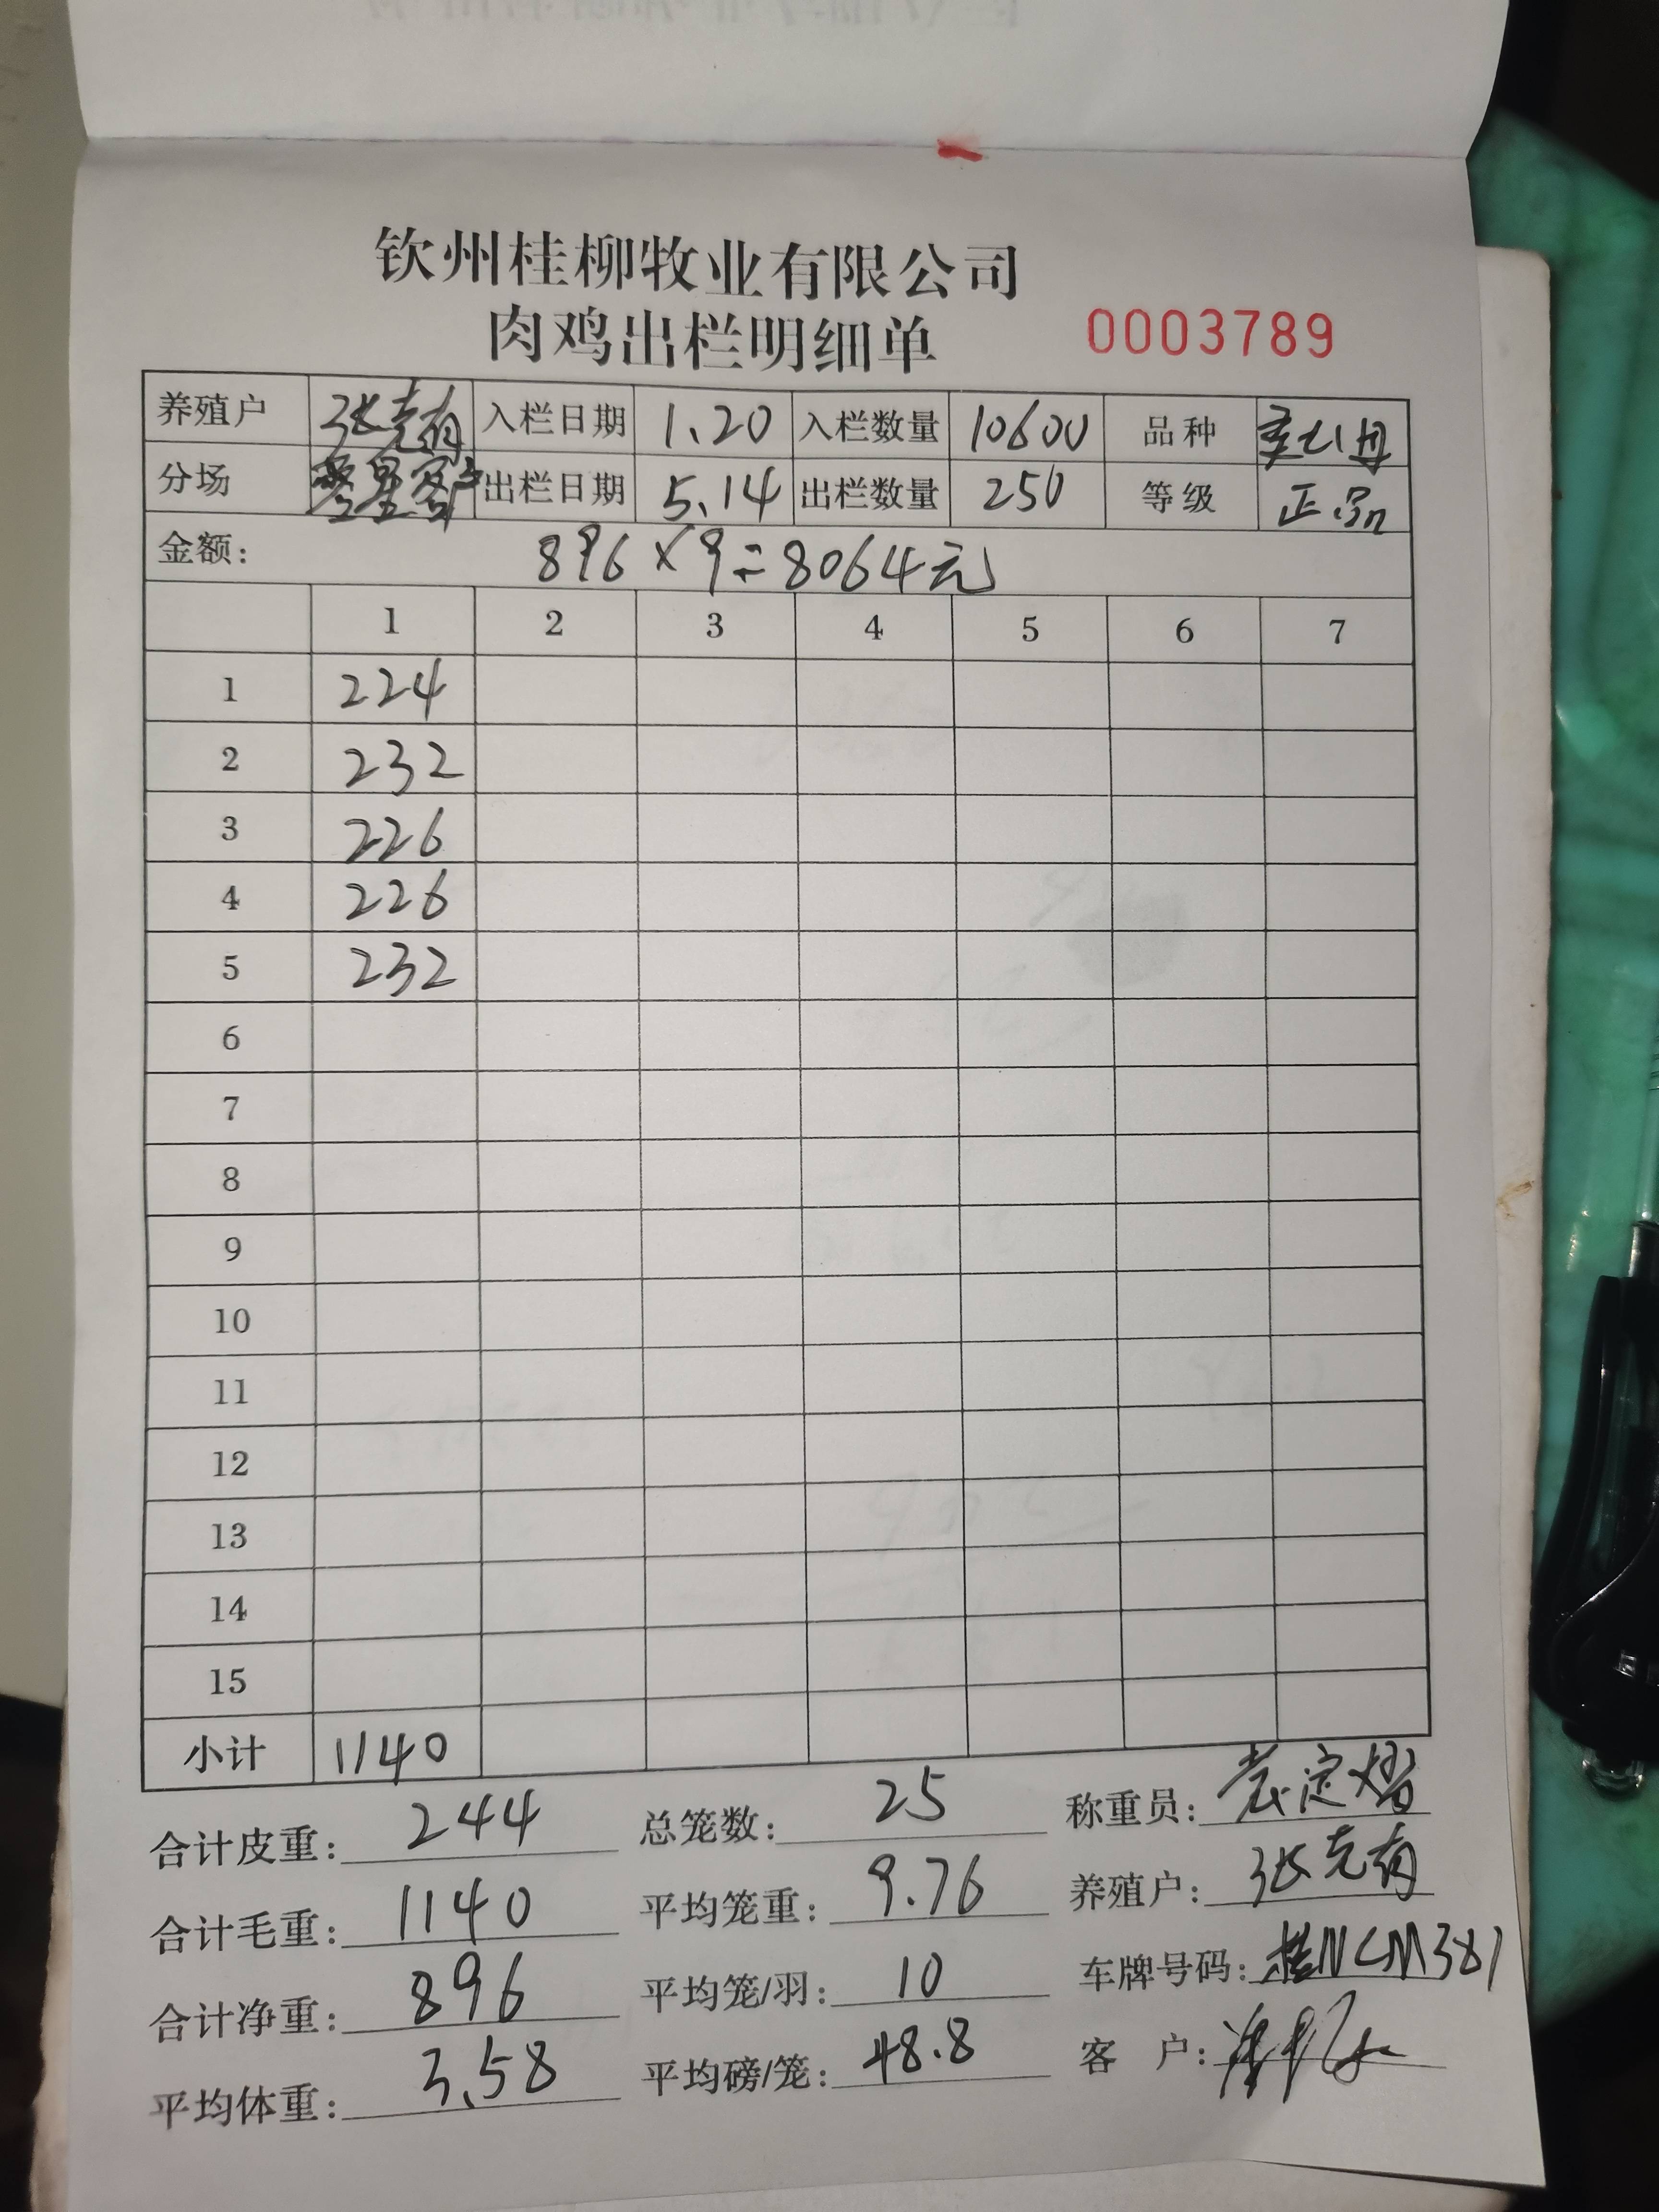 钦州桂柳牧业有限公司
肉鸡出栏明细单 0003789
养殖户 张克有 入栏日期 1.20 入栏数量 10600 品种
分场 零星客户 出栏日期 5.14 出栏数量 250 等级 正品
金额: 896×9=8064元
1 2 3 4 5 6 7
1 224
2 232
3 226
4 226
5 232
6
7
8
9
10
11
12
13
14
15
小计 1140
合计皮重: 244 总笼数: 25 称重员:
合计毛重: 1140 平均笼重: 9.76 养殖户: 张克有
合计净重: 896 平均笼/羽: 10 车牌号码: 桂NCM381
平均体重: 3.58 平均磅/笼: 48.8 客 户: